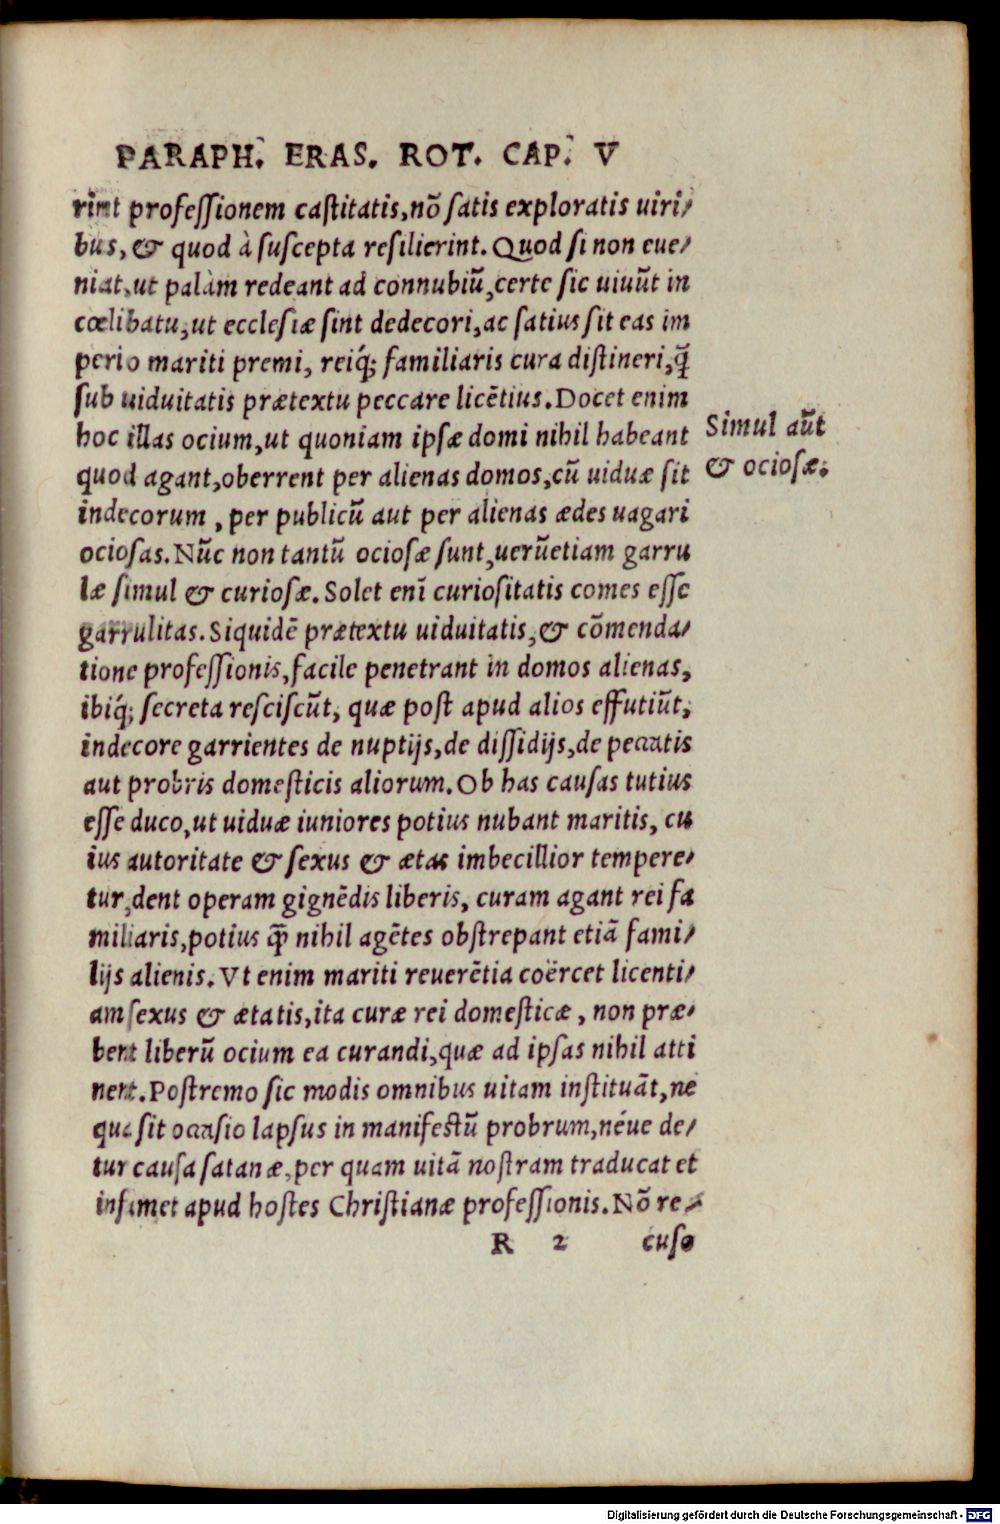 PARAPH. ERAS. ROT. CAP. V
rint professionem castitatis, nõ satis exploratis uiri/
bus, & quod à suscepta resilierint. Quod si non eue/
niat, ut palàm redeant ad connubiũ, certe sic uiuũt in
cœlibatu, ut ecclesiæ sint dedecori, ac satius sit eas im
perio mariti premi, reiq́; familiaris cura distineri, q̃
sub uiduitatis prætextu peccare licẽtius. Docet enim
hoc illas ocium, ut quoniam ipsæ domi nihil habeant
quod agant, oberrent per alienas domos, cũ uiduæ sit
indecorum, per publicũ aut per alienas ædes uagari
ociosas. Nũc non tantũ ociosæ sunt, uerũetiam garru
læ simul & curiosæ. Solet enĩ curiositatis comes esse
garrulitas. Siquidẽ prætextu uiduitatis, & cõmenda/
tione professionis, facile penetrant in domos alienas,
ibiq́; secreta resciscũt, quæ post apud alios effutiũt,
indecore garrientes de nuptijs, de dissidijs, de peccatis
aut probris domesticis aliorum. Ob has causas tutius
esse duco, ut uiduæ iuniores potius nubant maritis, cu
ius autoritate & sexus & ætas imbecillior tempere/
tur, dent operam gignẽdis liberis, curam agant rei fa
miliaris, potius q̃ nihil agẽtes obstrepant etiã fami/
lijs alienis. Vt enim mariti reuerẽtia coërcet licenti/
am sexus & ætatis, ita curæ rei domesticæ, non præ/
bent liberũ ocium ea curandi, quæ ad ipsas nihil atti
nent. Postremo sic modis omnibus uitam instituãt, ne
qua sit occasio lapsus in manifestũ probrum, néue de/
tur causa satanæ, per quam uitã nostram traducat et
infamet apud hostes Christianæ professionis. Nõ re/
R 2 cuso
Simul aũt
& ociosæ.
Digitalisierung gefördert durch die Deutsche Forschungsgemeinschaft - DFG